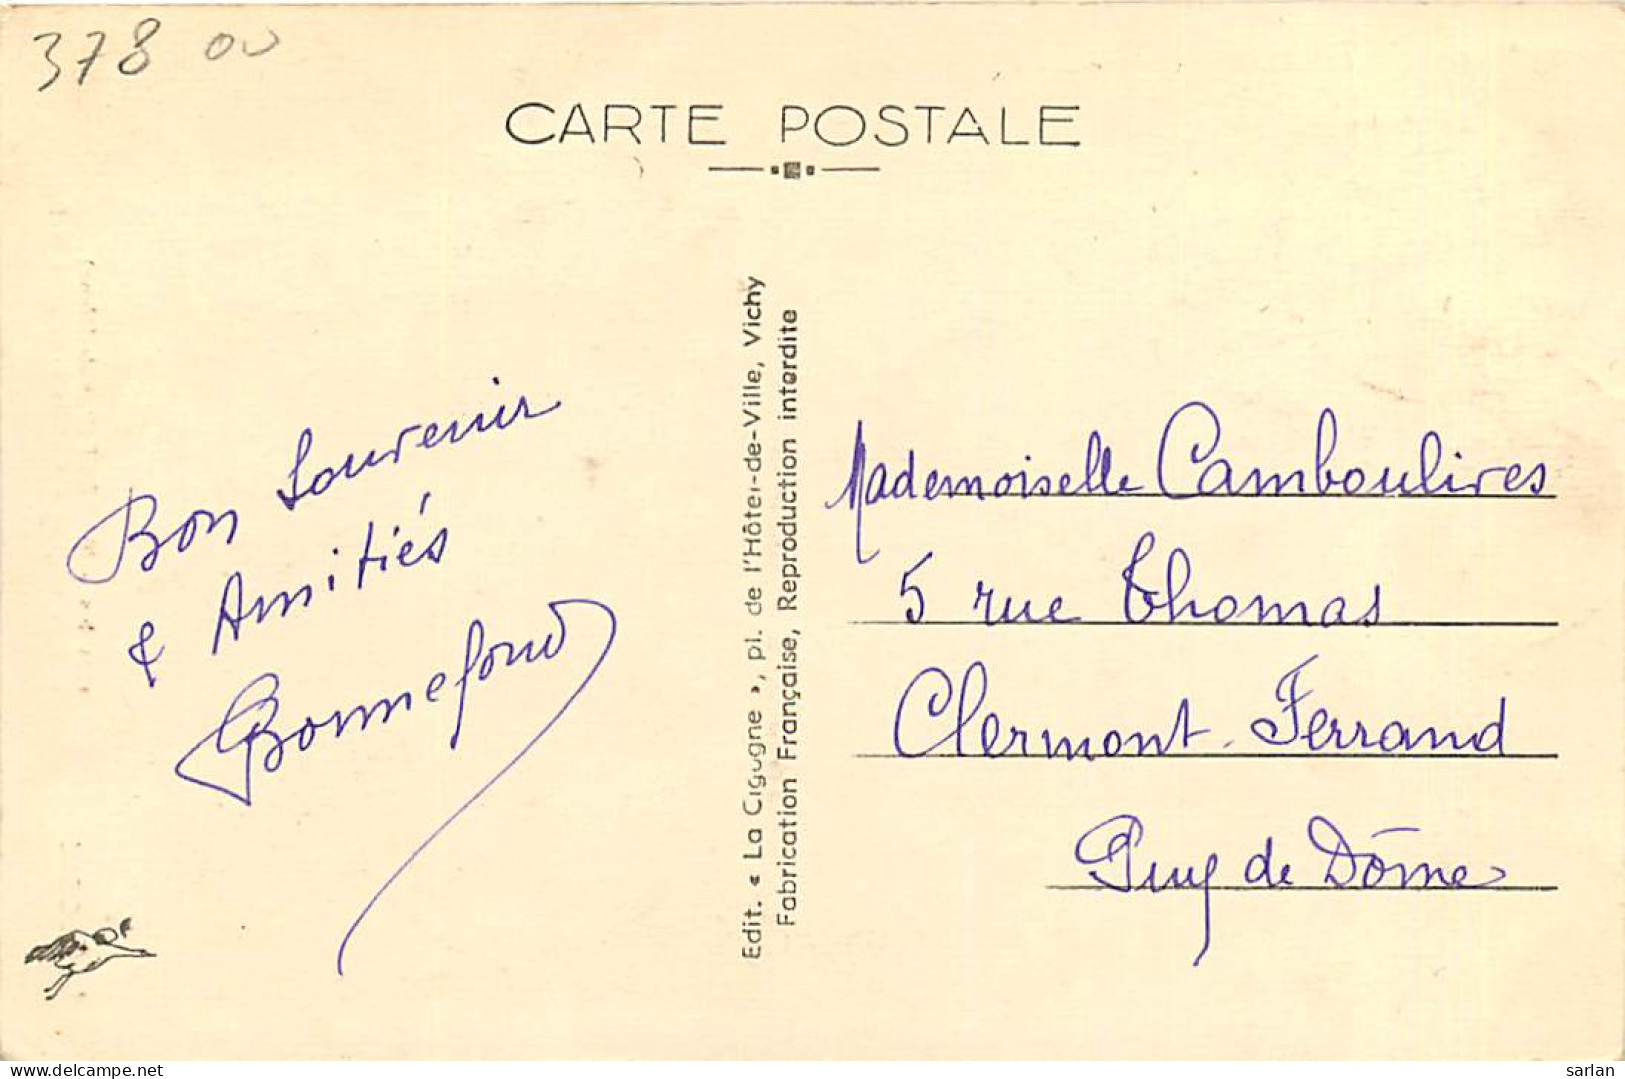 378 00
CARTE POSTALE
Bon Souvenir
& Amitiés
Bonnefond
Edit. « La Cigogne », pl. de l'Hôtel-de-Ville, Vichy
Fabrication Française, Reproduction interdite
Mademoiselle Camboulives
5 rue Thomas
Clermont-Ferrand
Puy de Dôme
delcampe.net
sarlan